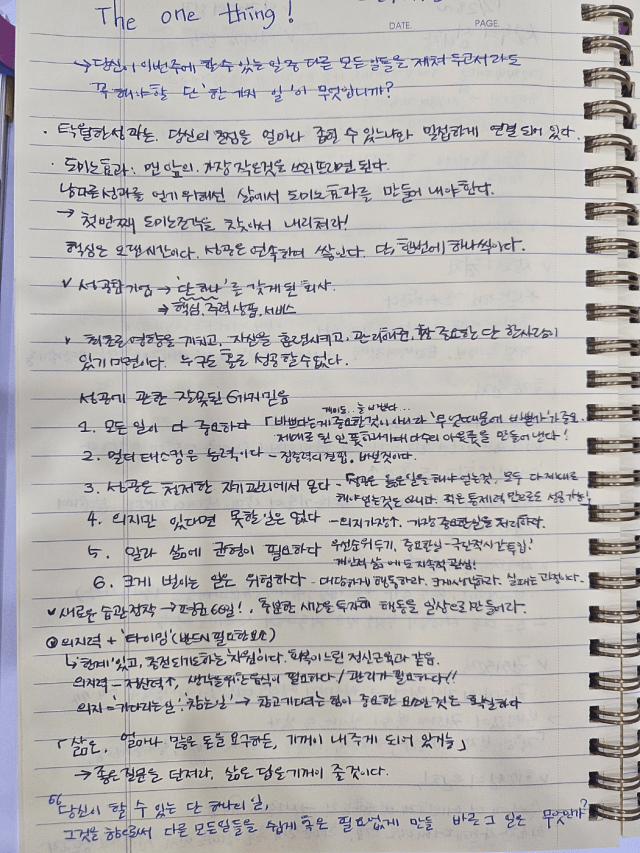 The one thing!
DATE. PAGE.
→ 당신이 이번주에 할 수 있는 일 중 다른 모든 일들을 제쳐 두고서라도
꼭 해야할 단 '한 가지 일'이 무엇입니까?
· 탁월한 성과는, 당신의 초점을 얼마나 좁힐 수 있느냐와 밀접하게 연결 되어 있다.
· 도미노효과: 맨 앞의, 가장 작은것을 쓰러뜨리면 된다.
남다른 성과를 얻기 위해선 삶에서 도미노효과를 만들어 내야한다.
→ 첫번째 도미노조각을 찾아서 내리쳐라!
핵심은 오랜시간이다. 성공은 연속하여 쌓인다. 단, 한번에 하나씩이다.
∨ 성공한 기업 → '단 하나'를 갖게 된 회사.
→ 핵심, 주력 상품, 서비스
∨ 최초로 영향을 끼치고, 자신을 훈련시키고, 관리해준, 참 중요한 단 한사람이
있기 마련이다. 누구도 홀로 성공할 수 없다.
성공에 관한 잘못된 6가지 믿음
개미도.. 늘 바쁘다...
1. 모든 일이 다 중요하다 「바쁘다는게 중요한것이 아니라 '무엇때문에 바쁜가'가 중요.
제대로 된 인풋 하나가 대다수의 아웃풋을 만들어 낸다!
2. 멀티 태스킹은 능력이다 - 집중력의 결핍, 바보짓이다.
3. 성공은 철저한 자기관리에서 온다 - 성공은 옳은일을 해야 얻는것, 모두 다 제대로
해야 얻는것도 아니다. 적은 통제력 만으로도 성공가능!
4. 의지만 있다면 못할 일은 없다 - 의지 가장↑, 가장 중요한일을 처리하라.
5. 일과 삶에 균형이 필요하다 우선순위 두기, 중요한일 - 극단적 시간투입!
개인적 삶에도 지속적 관심!
6. 크게 벌이는 일은 위험하다 - 대담하게 행동하라. 크게 생각하라. 실패는 과정이다.
∨ 새로운 습관 정착 → 평균 66일!, 중요한 시간을 투자해 행동을 일상으로 만들어라.
◎ 의지력 + '타이밍' (반드시 필요한 요소)
↳ '한계'있고, 충전되기도하는 '자원'이다. 회복이 느린 정신근육과 같음.
의지력 = 저전력↑, 생각을 위한 음식이 필요하다 / 관리가 필요하다!!
의지 = '기다리는일' '참는일' → 참고 기다리는 힘이 중요한 요소인 것은 확실하다
「삶은, 얼마나 많은 돈을 요구하든, 기꺼이 내 주게 되어 있거늘」
→ 좋은 질문을 던져라, 삶은 답을 기꺼이 줄것이다.
“당신이 할 수 있는 단 하나의 일,
그것을 함으로써 다른 모든일들을 쉽게 혹은 필요없게 만들 바로 그 일은 무엇인가?